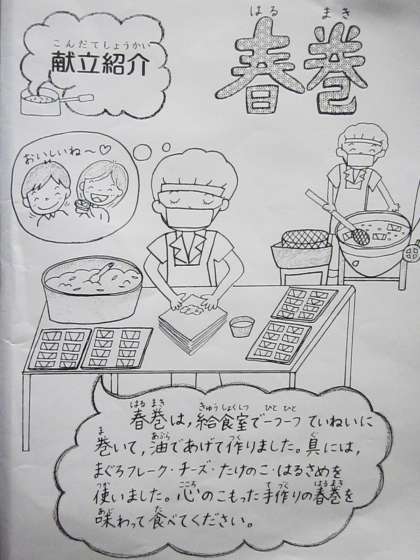 こんだてしょうかい
献立紹介
はる まき
春巻
おいしいね〜♡
はる まき きゅうしょくしつ ひと ひと
春巻は，給食室で一つ一つていねいに
ま あぶら つく ぐ
巻いて，油であげて作りました。具には，
まぐろフレーク・チーズ・たけのこ・はるさめを
つか こころ て づく はるまき
使いました。心のこもった手作りの春巻を
あじ た
味わって食べてください。